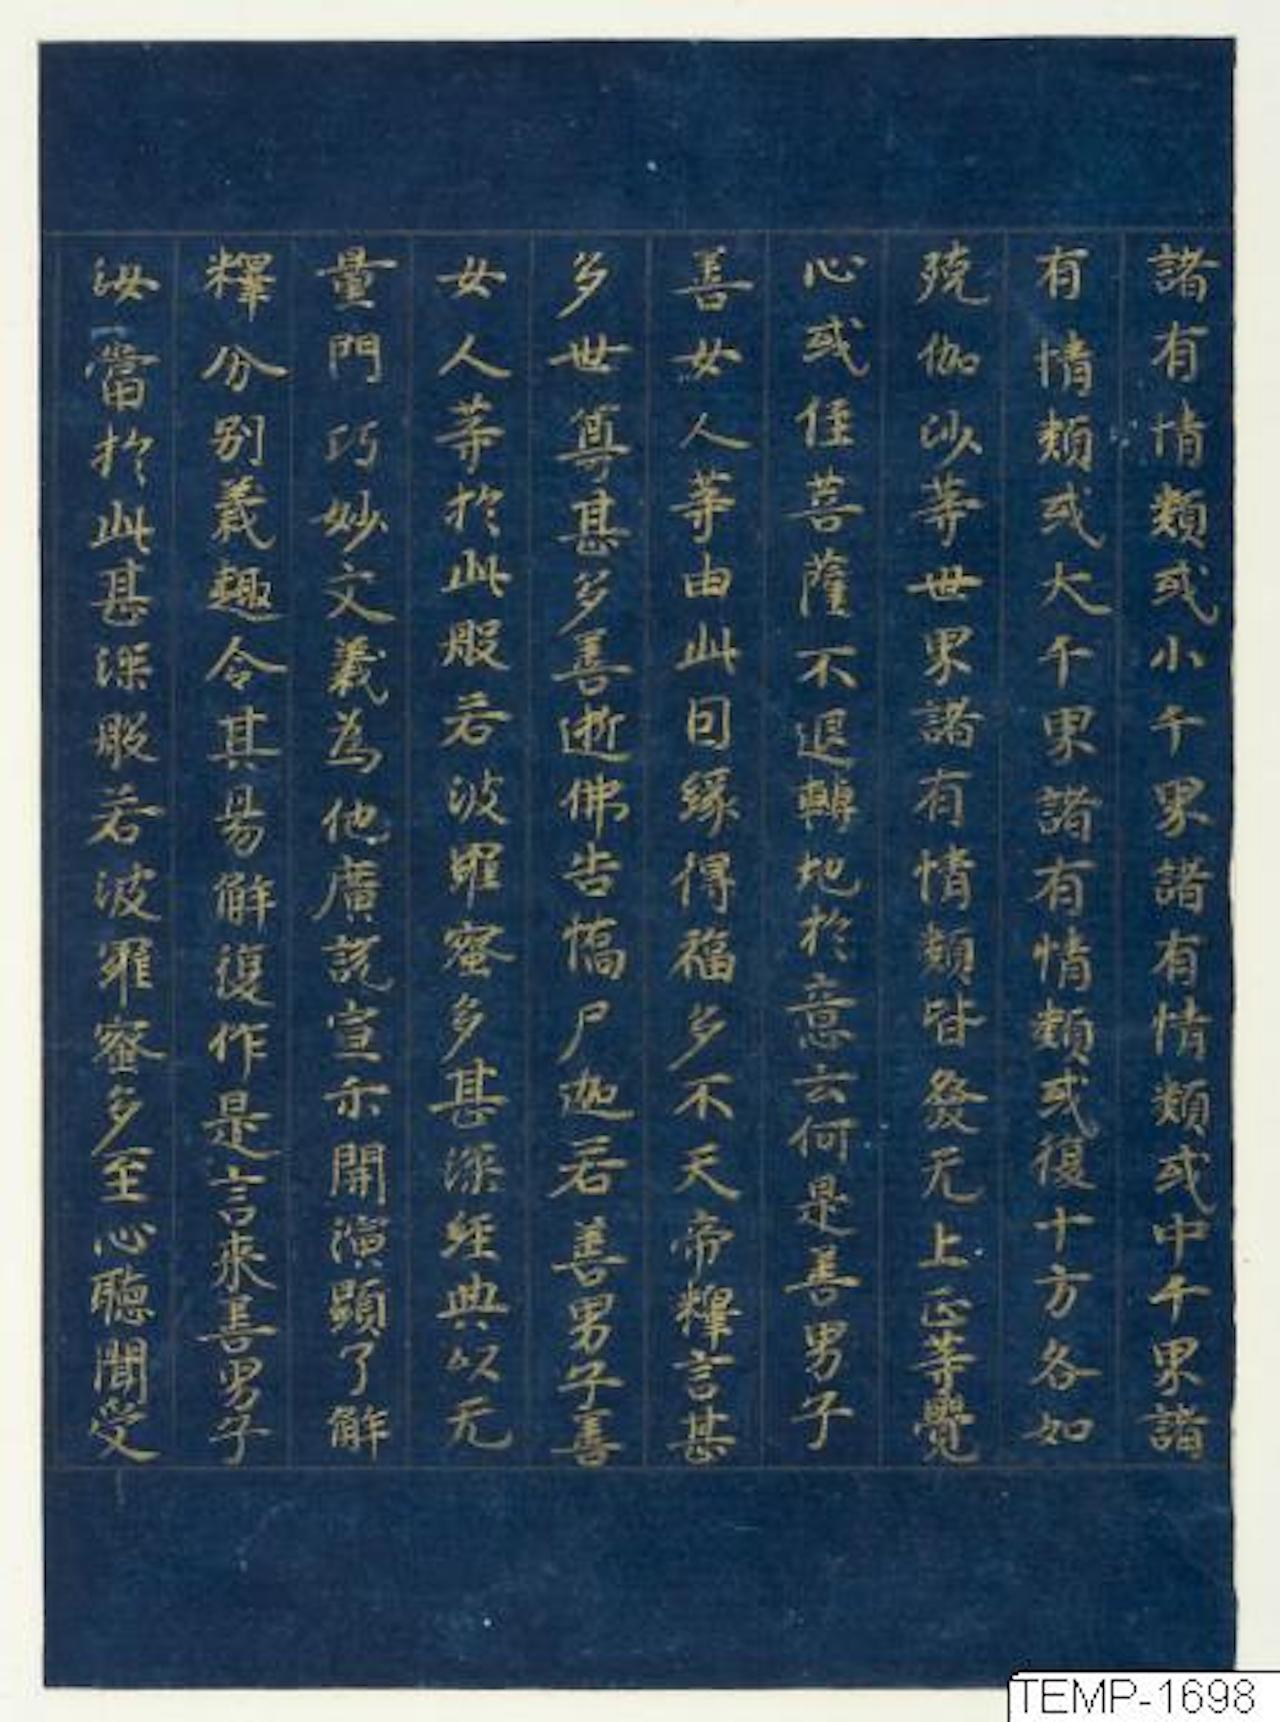 諸有情類或小千界諸有情類或中千界諸
有情類或大千界諸有情類或復十方各如
殑伽沙等世界諸有情類皆發无上正等覺
心或住菩薩不退轉地於意云何是善男子
善女人等由此因緣得福多不天帝釋言甚
多世尊甚多善逝佛告憍尸迦若善男子善
女人等於此般若波羅蜜多甚深經典以无
量門巧妙文義為他廣說宣示開演顯了解
釋分別義趣令其易解復作是言来善男子
汝當於此甚深般若波羅蜜多至心聽聞受
TEMP-1698